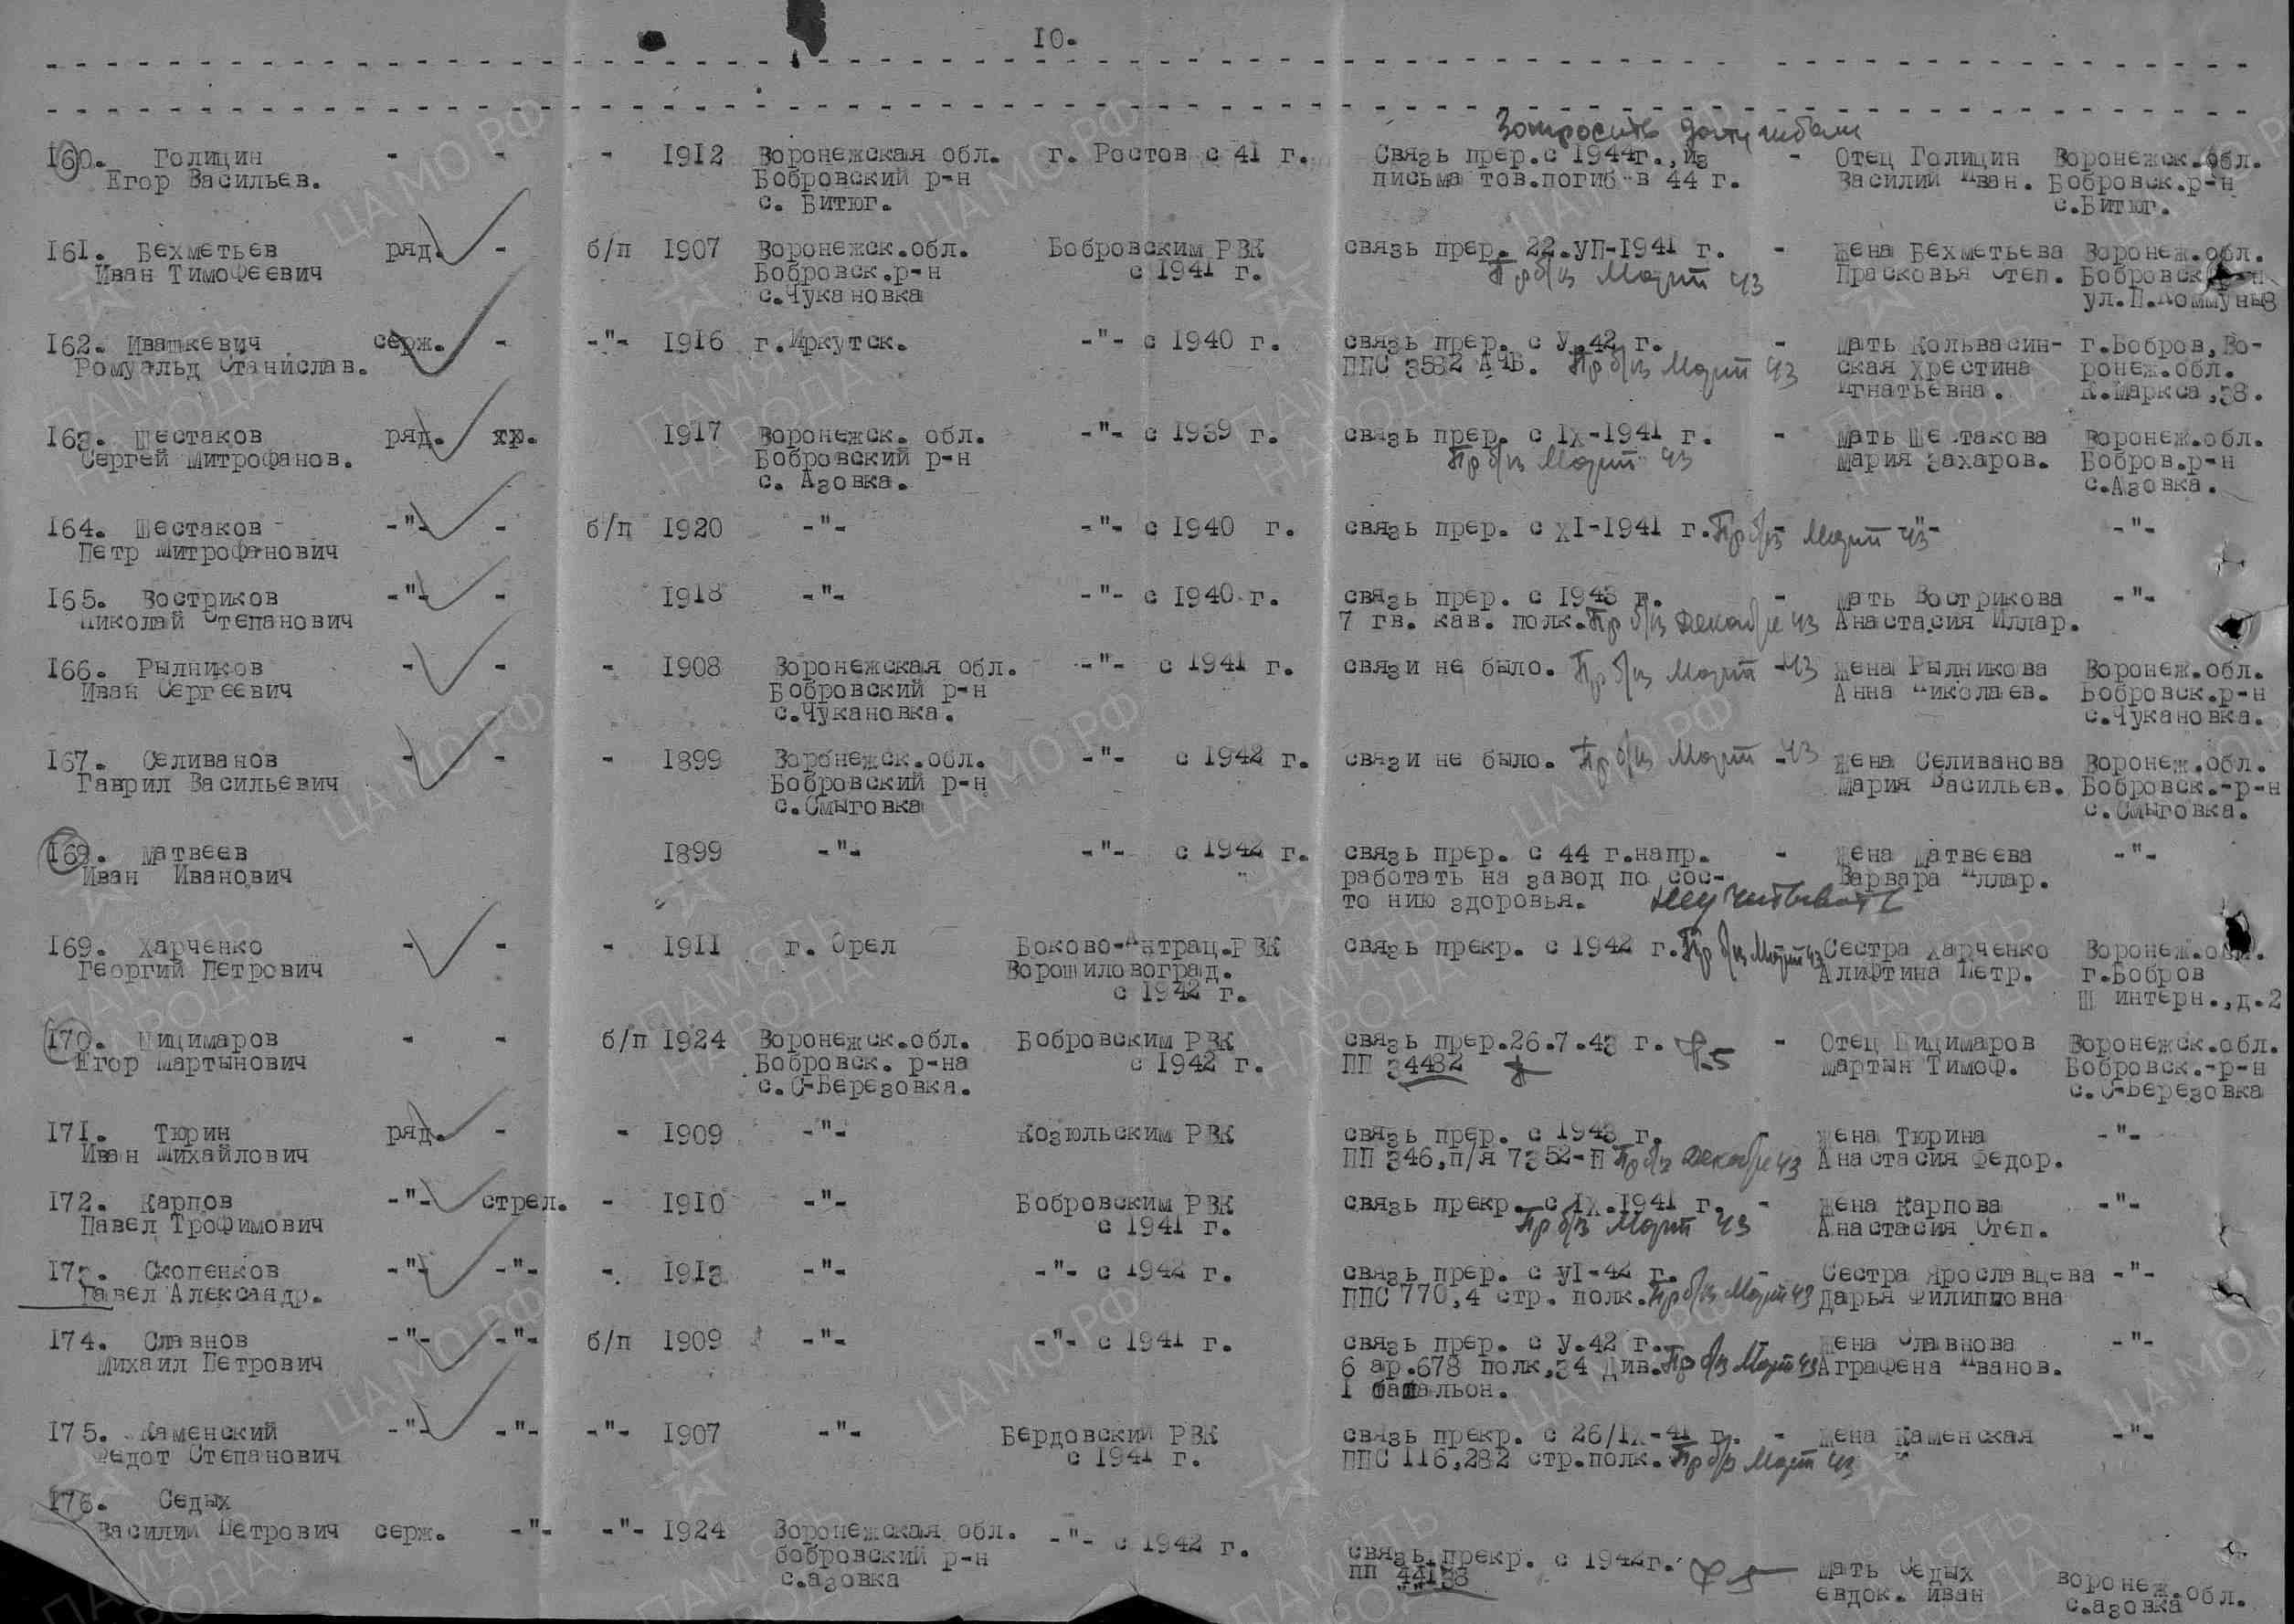 10.
Запросить дату гибели
160. Голицин - - - 1912 Воронежская обл. г. Ростов с 41 г. Связь прер. с 1944г.,из - Отец Голицин Воронежск.обл.
Егор Васильев. Бобровский р-н письма тов.погиб в 44 г. Василий Иван. Бобровск.р-н
с. Битюг. с.Битюг.
161. Бехметьев ряд. - б/п 1907 Воронежск.обл. Бобровским РВК связь прер. 22.УП-1941 г. - жена Бехметьева Воронеж.обл.
Иван Тимофеевич Бобровск.р-н с 1941 г. Пр б/из Март 43 Прасковья Степ. Бобровск.р-н
с.Чукановка ул.П.Коммуны
162. Ивашкевич серж. - -"- 1916 г.Иркутск. -"- с 1940 г. связь прер. с У.42 г. - мать Кольвасин- г.Бобров,Во-
Ромуальд Станислав. ППС 3582 АЧБ. Пр б/из Март 43 ская Христина ронеж.обл.
Игнатьевна. К.Маркса,38.
163. Шестаков ряд. хр. 1917 Воронежск. обл. -"- с 1939 г. связь прер. с IХ-1941 г. - мать Шестакова Воронеж.обл.
Сергей Митрофанов. Бобровский р-н Пр б/из Март 43 Мария Захаров. Бобров.р-н
с. Азовка. с.Азовка.
164. Шестаков -"- - б/п 1920 -"- -"- с 1940 г. связь прер. с ХI-1941 г. Пр б/из Март 43 -"- -"-
Петр Митрофанович
165. Востриков -"- - 1918 -"- -"- с 1940 г. связь прер. с 1943 г. - мать Вострикова -"-
Николай Степанович 7 гв. кав. полк. Пр б/из Декабре 43 Анастасия Иллар.
166. Рылников - - - 1908 Воронежская обл. -"- с 1941 г. связи не было. Пр б/из Март 43 - жена Рылникова Воронеж.обл.
Иван Сергеевич Бобровский р-н Анна Николаев. Бобровск.р-н
с.Чукановка. с.Чукановка.
167. Селиванов - - - 1899 Воронежск.обл. -"- с 1942 г. связи не было. Пр б/из Март 43 - жена Селиванова Воронеж.обл.
Гаврил Васильевич Бобровский р-н Мария Васильев. Бобровск.-р-н
с.Смыговка с.Смыговка.
168. Матвеев 1899 -"- -"- с 1942 г. связь прер. с 44 г.напр. - жена Матвеева -"-
Иван Иванович работать на завод по сос- Варвара Иллар.
то нию здоровья. не учитывать
169. Харченко - - - 1911 г. Орел Боково-Антрац.РВК связь прекр. с 1942 г. Пр б/из Март 43 Сестра Харченко Воронеж.обл.
Георгий Петрович Ворошиловоград. Алифтина Петр. г.Бобров
с 1942 г. Ш интерн.,д.2
170. Пицимаров - - б/п 1924 Воронежск.обл. Бобровским РВК связь прер.26.7.43 г. Ф-5 - Отец Пицимаров Воронежск.обл.
Егор Мартынович Бобровск. р-на с 1942 г. ПП 34482 Мартын Тимоф. Бобровск.-р-н
с.С-Березовка. с.С-Березовка
171. Тюрин ряд. - - 1909 -"- Козюльским РВК связь прер. с 1943 г. - жена Тюрина -"-
Иван Михайлович ПП 346,п/я 7352-П Пр б/из Декабре 43 Анастасия Федор.
172. Карпов -"- стрел. - 1910 -"- Бобровским РВК связь прекр. с IХ.1941 г. - жена Карпова -"-
Павел Трофимович с 1941 г. Пр б/из Март 43 Анастасия Степ.
173. Скопенков -"- -"- - 1913 -"- -"- с 1942 г. связь прер. с УI-42 г. - Сестра Ярославцева -"-
Павел Александр. ППС 770,4 стр. полк. Пр б/из Март 43 Дарья Филипповна
174. Славнов -"- -"- б/п 1909 -"- -"- с 1941 г. связь прер. с У.42 г. - жена Славнова -"-
Михаил Петрович 6 ар.678 полк,34 див. Пр б/из Март 43 Аграфена Иванов.
1 батальон.
175. Каменский -"- -"- -"- 1907 -"- Бердовский РВК связь прекр. с 26/IХ-41 г. - жена Каменская -"-
Федот Степанович с 1941 г. ППС 116,282 стр.полк. Пр б/из Март 43
176. Седых
Василий Петрович серж. -"- -"- 1924 Воронежская обл. -"- с 1942 г. связь прекр. с 1942г. Ф 5 мать Седых воронеж.обл.
бобровский р-н пп 44138 евдок. иван с.азовка
с.азовка